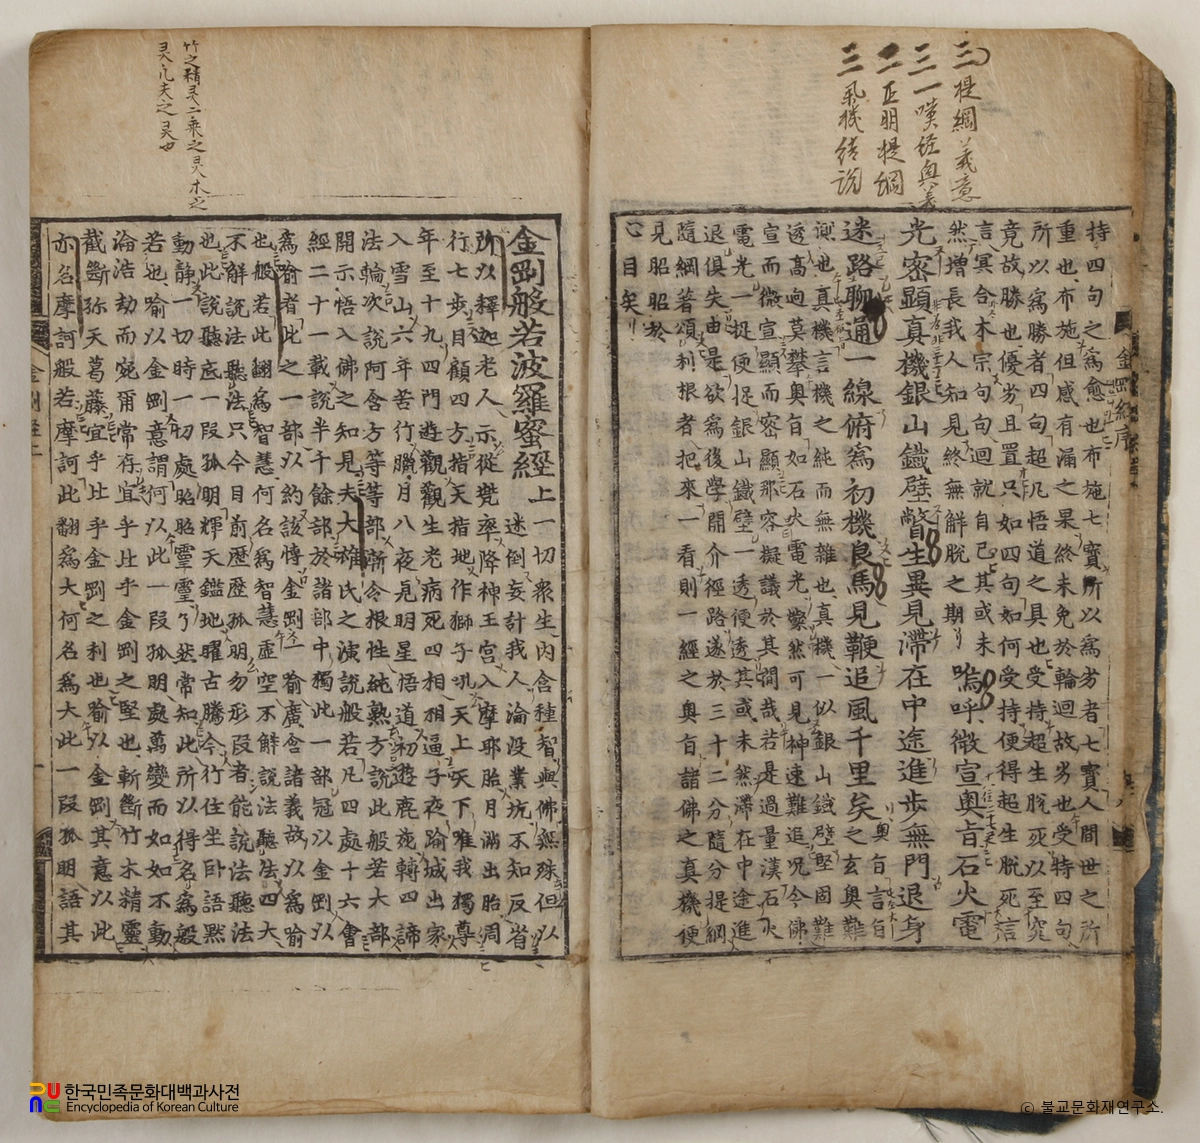 三 提綱義意
三 一嘆經奧義
二 正明提綱
三 乘機結說
持四句之爲愈也布施七寶所以爲劣者七寶人間世之所
重也布施但感有漏之果終未免於輪迴故劣也受持四句
所以爲勝者四句超凡悟道之具也受持超生脫死以至究
竟故勝也優劣且置只如四句如何受持便得超生脫死言
言冥合本宗句句迴就自己其或未
然增長我人知見終無解脫之期 嗚呼微宣奧旨石火電
光密顯真機銀山鐵壁瞥生異見滯在中途進步無門退身
迷路聊通一線俯爲初機良馬見鞭追風千里矣之玄奧難
奧旨言旨
測也真機言機之純而無雜也真機一似銀山鐵壁堅固難
透高逈莫攀奧旨如石火電光爍然可見神速難追况今佛
宣而微宣顯而密顯那容擬議於其間哉若是過量漢石火
電光一捉便捉銀山鐵壁一透便透其或未然滯在中途進
退俱失由是欲爲後學開介徑路遂於三十二分隨分提綱
隨綱著頌利根者把來一看則一經之奧旨諸佛之真機便
見昭昭於
心目矣
金剛經序
竹之精灵二乘之灵木之
灵凡夫之灵也
金剛般若波羅蜜經上
一切衆生內含種智與佛無殊但以
迷倒妄計我人淪没業坑不知反省
所以釋迦老人示從兜率降神王宮入摩耶胎月滿出胎周
行七步目顧四方指天指地作獅子吼天上天下唯我獨尊
年至十九四門遊觀觀生老病死四相相逼子夜踰城出家
入雪山六年苦行臘月八夜見明星悟道初遊鹿苑轉四諦
法輪次說阿含方等等部漸令根性純熟方說此般若大部
開示悟入佛之知見夫大雄氏之演說般若凡四處十六會
經二十一載說半千餘部於諸部中獨此一部冠以金剛以
爲喻者此之一部以約該博金剛一喻廣含諸義故以爲喻
也般若此翻爲智慧何名爲智慧虛空不解說法聽法四大
不解說法聽法只今目前歷歷孤明勿形段者能說法聽法
也此說聽底一段孤明輝天鑑地曜古騰今行住坐卧語默
動靜一切時一切處昭昭靈靈了然常知此所以得名爲般
若也喻以金剛意謂何以此一段孤明處萬變而如如不動
淪浩劫而宛爾常存宜乎比乎金剛之堅也斬斷竹木精靈
截斷弥天葛藤宜乎比乎金剛之利也喻以金剛其意以此
亦名摩訶般若摩訶此翻爲大何名爲大此一段孤明語其
한국민족문화대백과사전
Encyclopedia of Korean Culture
© 불교문화재연구소.